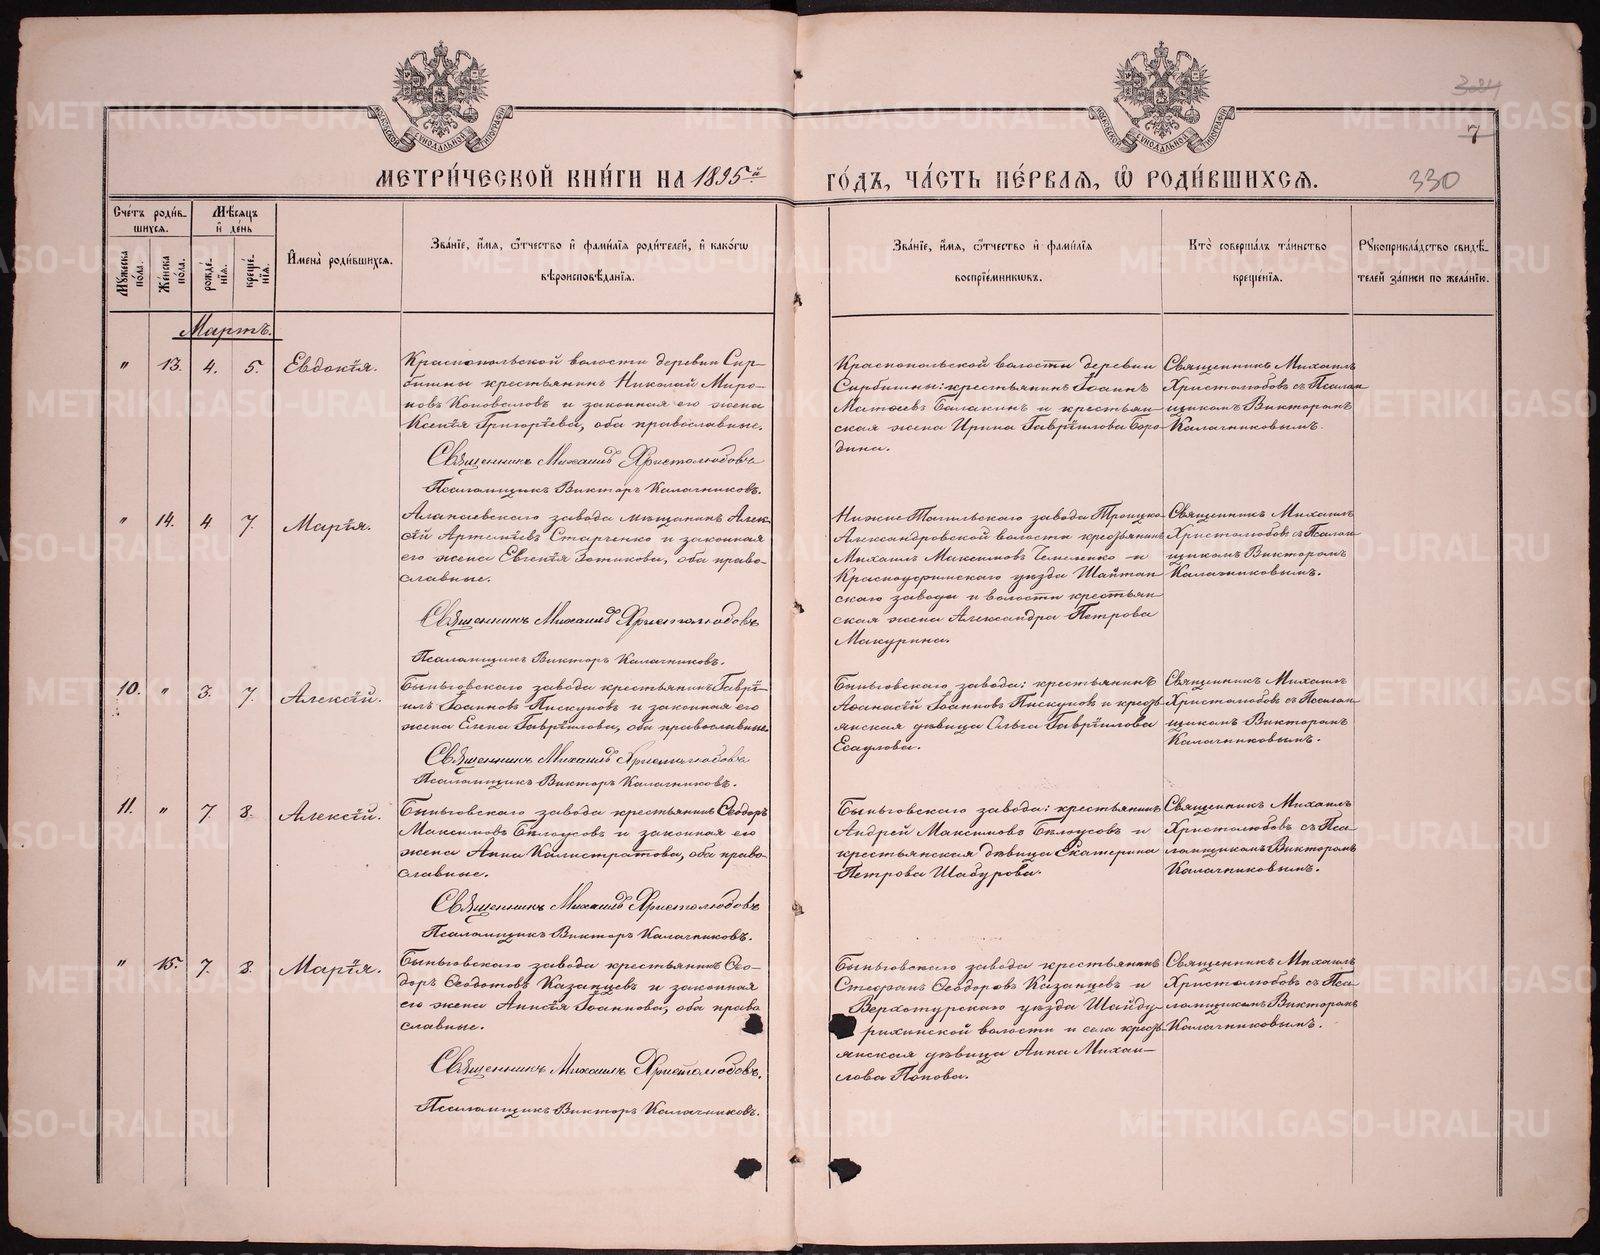 324
7
330
МОСКОВСКОЙ СѴНОДАЛЬНОЙ ТИПОГРАФІИ
МОСКОВСКОЙ СѴНОДАЛЬНОЙ ТИПОГРАФІИ
МЕТРИ́ЧЕСКОЙ КНИ́ГИ НА 1895й ГО́ДЪ, ЧА́СТЬ ПЕ́РВАЯ, Ѡ РОДИ́ВШИХСЯ.
Сче́тъ роди́в-
шихся.
Му́жеска по́ла.
Же́нска по́ла.
Мѣ́сяцъ
и де́нь
рожде́-
нія.
креще́-
нія.
Имена̀ роди́вшихся.
Зва́ніе, и́мя, ѻ́тчество и фами́лія роди́телей, и како́гѡ
вѣроисповѣ́данія.
Зва́ніе, и́мя, ѻ́тчество и фами́лія
воспріе́мниковъ.
Кто̀ соверша́лъ та́инство
креще́нія.
Рꙋкоприкла́дство свидѣ́-
телей за́писи по жела́нію.
Мартъ.
" 13. 4. 5. Евдокія.
Краснопольской волости деревни Сер-
бишны крестьянинъ Николай Миро-
новъ Коноваловъ и законная его жена
Ксенія Григоріева, оба православные.
Священникъ Михаилъ Христолюбовъ
Псаломщикъ Викторъ Калачниковъ.
Краснопольской волости деревни
Сербишны: крестьянинъ Іоаннъ
Матѳеевъ Балакинъ и крестьян-
ская жена Ирина Гавріилова Боро-
дина.
Священникъ Михаилъ
Христолюбовъ съ Псалом-
щикомъ Викторомъ
Калачниковымъ.
" 14. 4 7. Марія.
Алапаевскаго завода мѣщанинъ Алек-
сій Артеміевъ Старченко и законная
его жена Евгенія Зотикова, оба право-
славные.
Священникъ Михаилъ Христолюбовъ
Псаломщикъ Викторъ Калачниковъ.
Нижне-Тагильскаго завода Троицко-
Александровской волости крестьянинъ
Михаилъ Максимовъ
и
Красноуфимскаго уѣзда Шайтан-
скаго завода и волости крестьян-
ская жена Александра Петрова
Макурина.
Священникъ Михаилъ
Христолюбовъ съ Псалом-
щикомъ Викторомъ
Калачниковымъ.
10. " 3. 7. Алексій.
Быньговскаго завода крестьянинъ Гаврі-
илъ Іоанновъ Пискуновъ и законная его
жена Елена Гавріилова, оба православные.
Священникъ Михаилъ Христолюбовъ
Псаломщикъ Викторъ Калачниковъ.
Быньговскаго завода: крестьянинъ
Аѳанасій Іоанновъ Пискуновъ и кресть-
янская дѣвица Ольга Гавріилова
Есаулова.
Священникъ Михаилъ
Христолюбовъ съ Псалом-
щикомъ Викторомъ
Калачниковымъ.
11. " 7. 8. Алексій.
Быньговскаго завода крестьянинъ Ѳеодоръ
Максимовъ Бѣлоусовъ и законная его
жена Анна Калистратова, оба право-
славные.
Священникъ Михаилъ Христолюбовъ
Псаломщикъ Викторъ Калачниковъ.
Быньговскаго завода: крестьянинъ
Андрей Максимовъ Бѣлоусовъ и
крестьянская дѣвица Екатерина
Петрова Шабурова.
Священникъ Михаилъ
Христолюбовъ съ Пса-
ломщикомъ Викторомъ
Калачниковымъ.
" 15. 7. 8. Марія.
Быньговскаго завода крестьянинъ Ѳео-
доръ Ѳеодотовъ Казанцевъ и законная
его жена Анисія Іоаннова, оба право
славные.
Священникъ Михаилъ Христолюбовъ.
Псаломщикъ Викторъ Калачниковъ.
Быньговскаго завода крестьянинъ
Стефанъ Ѳеодоровъ Казанцевъ и
Верхотурскаго уѣзда Шайду-
рихинской волости и села кресть-
янская дѣвица Анна Михаи-
лова Попова.
Священникъ Михаилъ
Христолюбовъ съ Пса-
ломщикомъ Викторомъ
Калачниковымъ.
METRIKI.GASO-URAL.RU